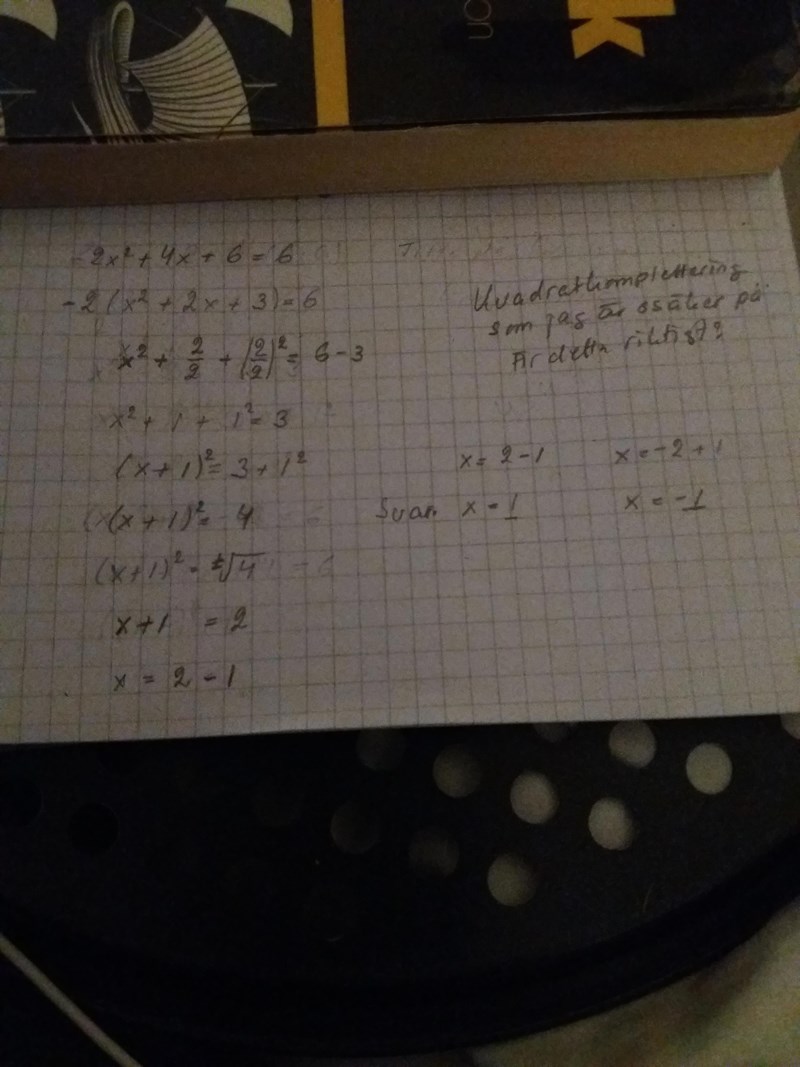 k
on
-2x² + 4x + 6 = 6
-2(x² + 2x + 3) = 6
x² + 2/2 + (2/2)² = 6 - 3
x² + 1 + 1² = 3
(x + 1)² = 3 + 1²
(x + 1)² = 4
(x + 1)² = ±√4
x + 1 = 2
x = 2 - 1
Kvadratkomplettering
som jag är osäker på
Är detta riktigt?
x = 2 - 1 x = -2 + 1
Svar x = 1 x = -1